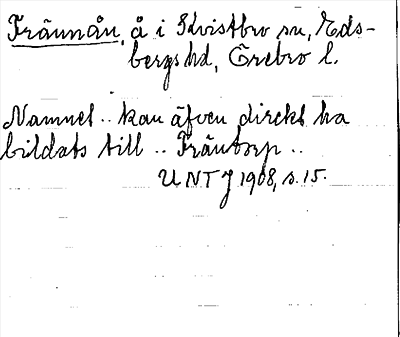 Trännån, å i Kvistbro sn, Eds-
bergs hd, Örebro l.
Namnet .. kan äfven direkt ha
bildats till .. Träntorp ..
UNT J 1908, s. 15.